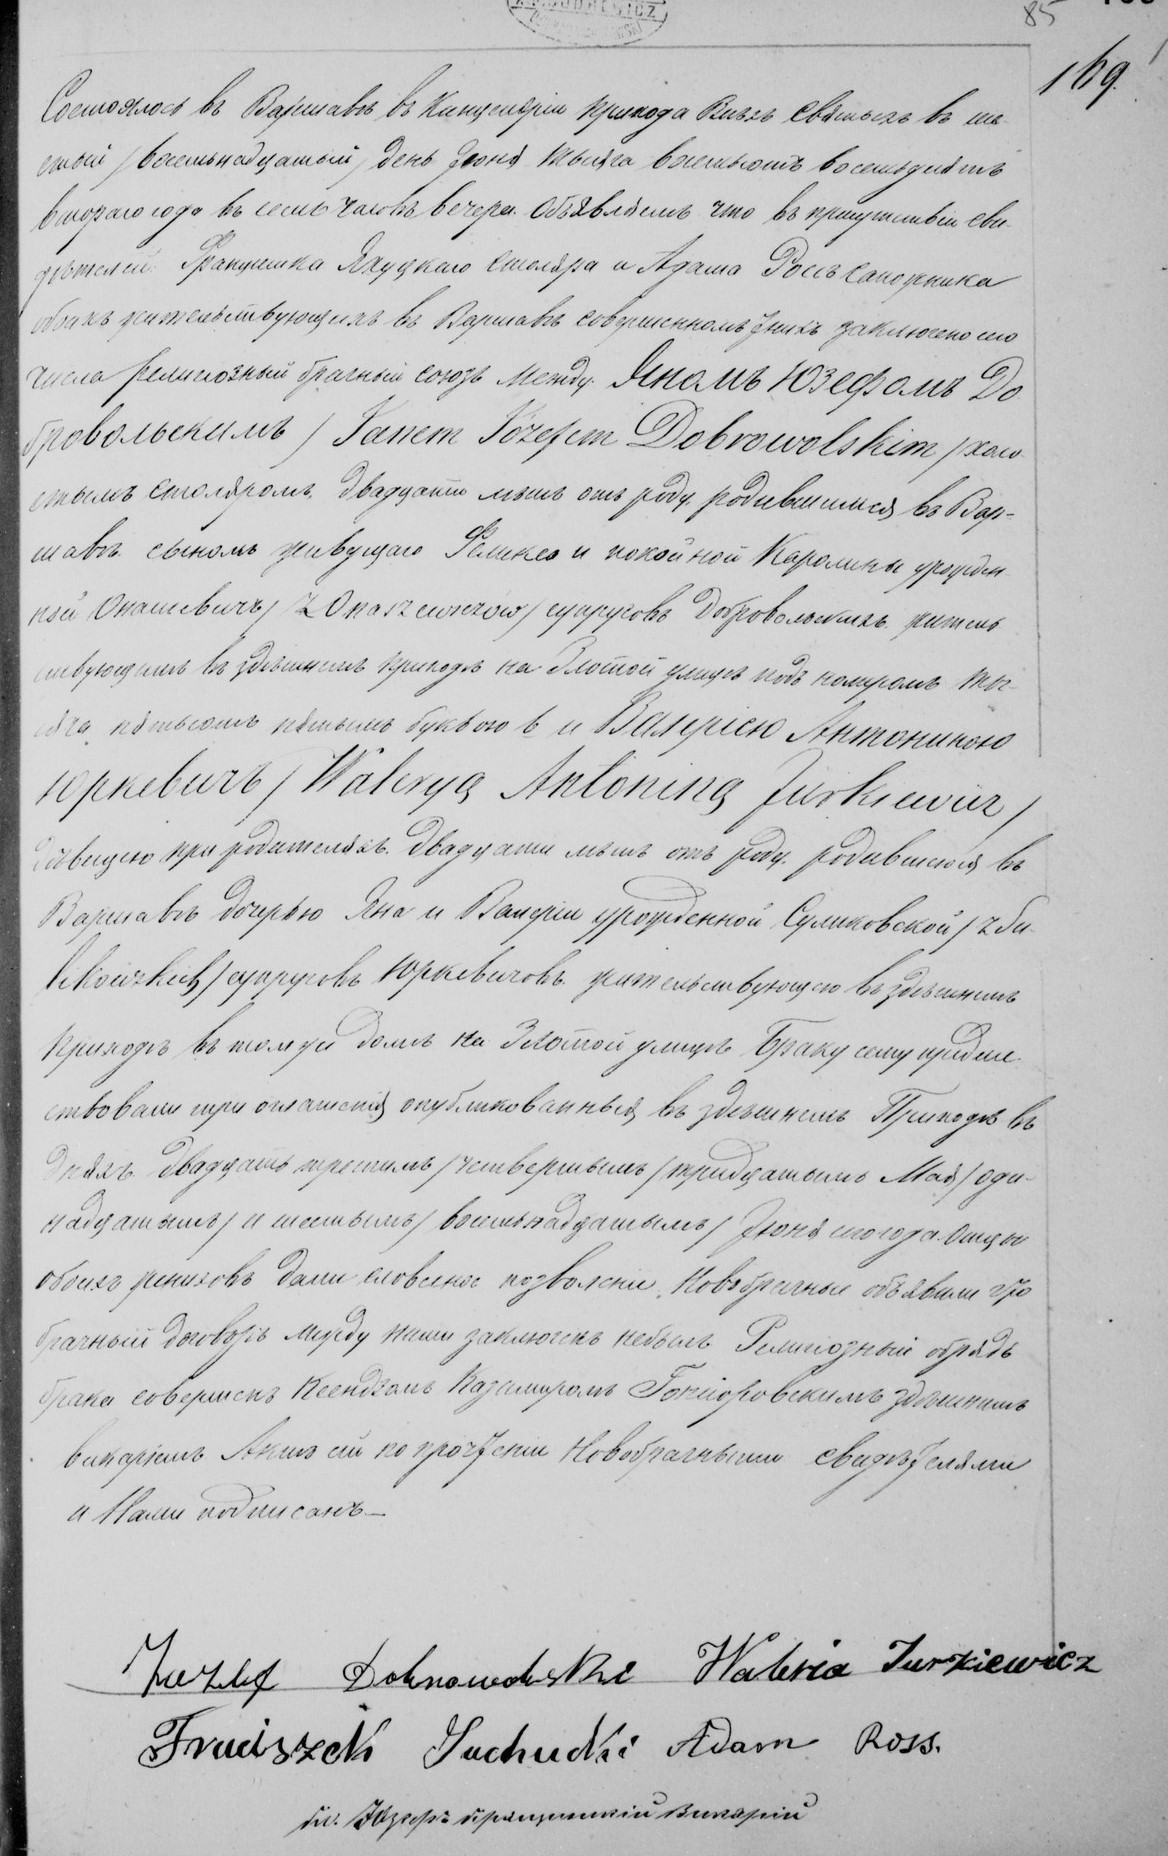 85
169.
Состоялось въ Варшавѣ въ Канцелярiи прихода Всѣхъ Святыхъ въ ше-
стый /восемьнадцатый/ день Iюня тысяча восемьсотъ восемьдесятъ
втораго года въ семь часовъ вечера. Объявляемъ что въ присутствiи сви-
дѣтелей Францишка столяра и Адама Россъ сапожника
обоихъ жительствующихъ въ Варшавѣ совершеннолѣтнихъ заключено сего
числа религiозный брачный союзъ между Яномъ Юзефомъ До
бровольскимъ /Janem Józefem Dobrowolskim/ холо
стымъ столяромъ, двадцати лѣтъ отъ роду, родившимся въ Вар-
шавѣ сыномъ живущаго Феликса и покойной Каролины урожден
ной Опашевичъ /z Opaszewiczów/ супруговъ Добровольскихъ. житель
ствующимъ въ здѣшнемъ приходѣ на Злотой улицѣ подъ номеромъ ты-
сяча пятьсотъ пятымъ буквою в и Валерiею Антониною
Юркевичъ /Waleryą Antoniną Jurkiewicz/
дѣвицею при родителяхъ. двадцати лѣтъ отъ роду. родившеюся въ
Варшавѣ дочерью Яна и Валерiи урожденной Суликовской /z Su-
likowskich/ супруговъ Юркевичовъ жительствующею въ здѣшнемъ
приходѣ въ томже домѣ на Злотой улицѣ. Браку сему предше
ствовали три оглашенiя опубликованныя въ здѣшнемъ Приходѣ въ
дняхъ двадцать третьимъ /четвертымъ/ тридцатымъ Мая /оди-
надцатымъ/ и шестымъ /восемьнадцатымъ/ Iюня сего года. Отцы
обоихъ жениховъ дали словесное позволенiе. Новобрачные объявили что
брачный договоръ между ними заключенъ небылъ Религiозный обрядъ
брака совершенъ Ксендзомъ Казимiромъ здѣшнимъ
викарiемъ Актъ сей по прочтенiи Новобрачными свидѣтелями
и Нами подписанъ. —
Juzef Dobrowolski Waleria Jurkiewicz
Franciszek Jachucki Adam Ross.
Викарiй